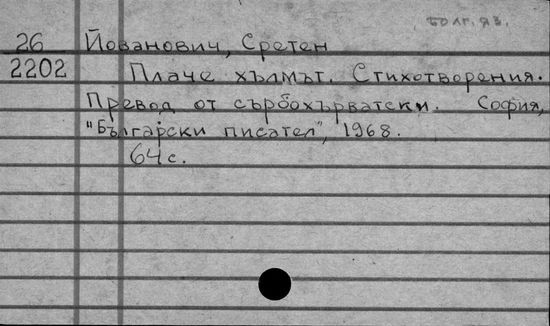 болг. яз.
26 Йованович, Сретен
2202 Плаче хълмът. Стихотворения.
Превод от сърбохърватски. София,
"Български писател", 1968.
64 с.